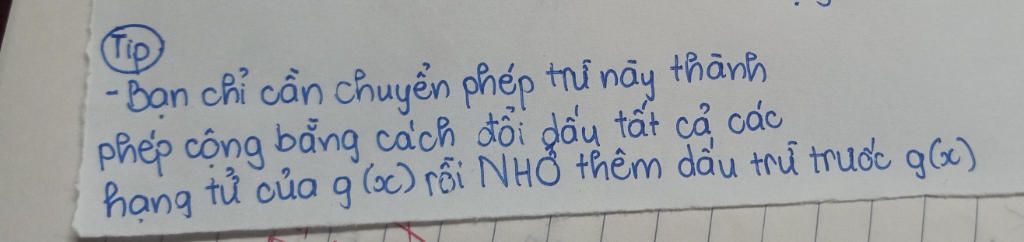 Tip
- Bạn chỉ cần chuyển phép trừ này thành
phép cộng bằng cách đổi dấu tất cả các
hạng tử của g(x) rồi NHỚ thêm dấu trừ trước g(x)